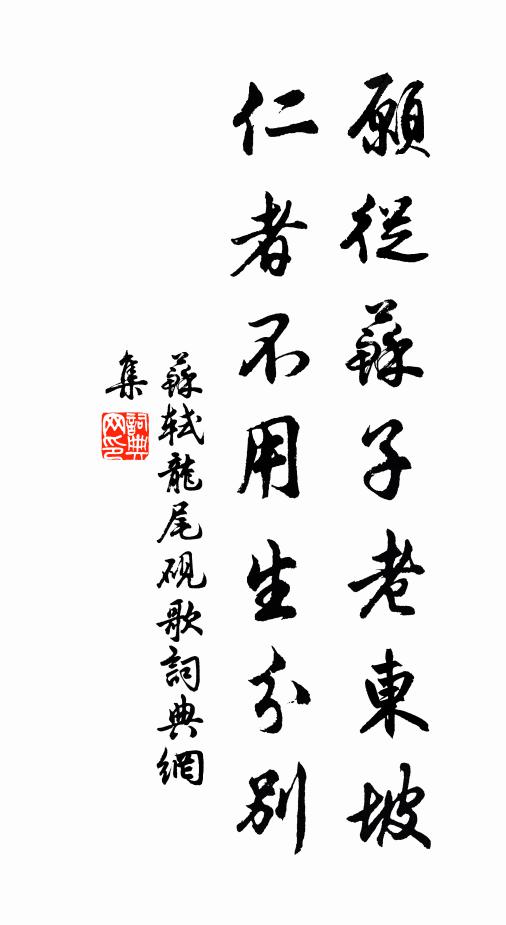 願從蘇子老東坡
仁者不用生分別
蘇軾龍尾硯歌詞典網
集
詞典
网印